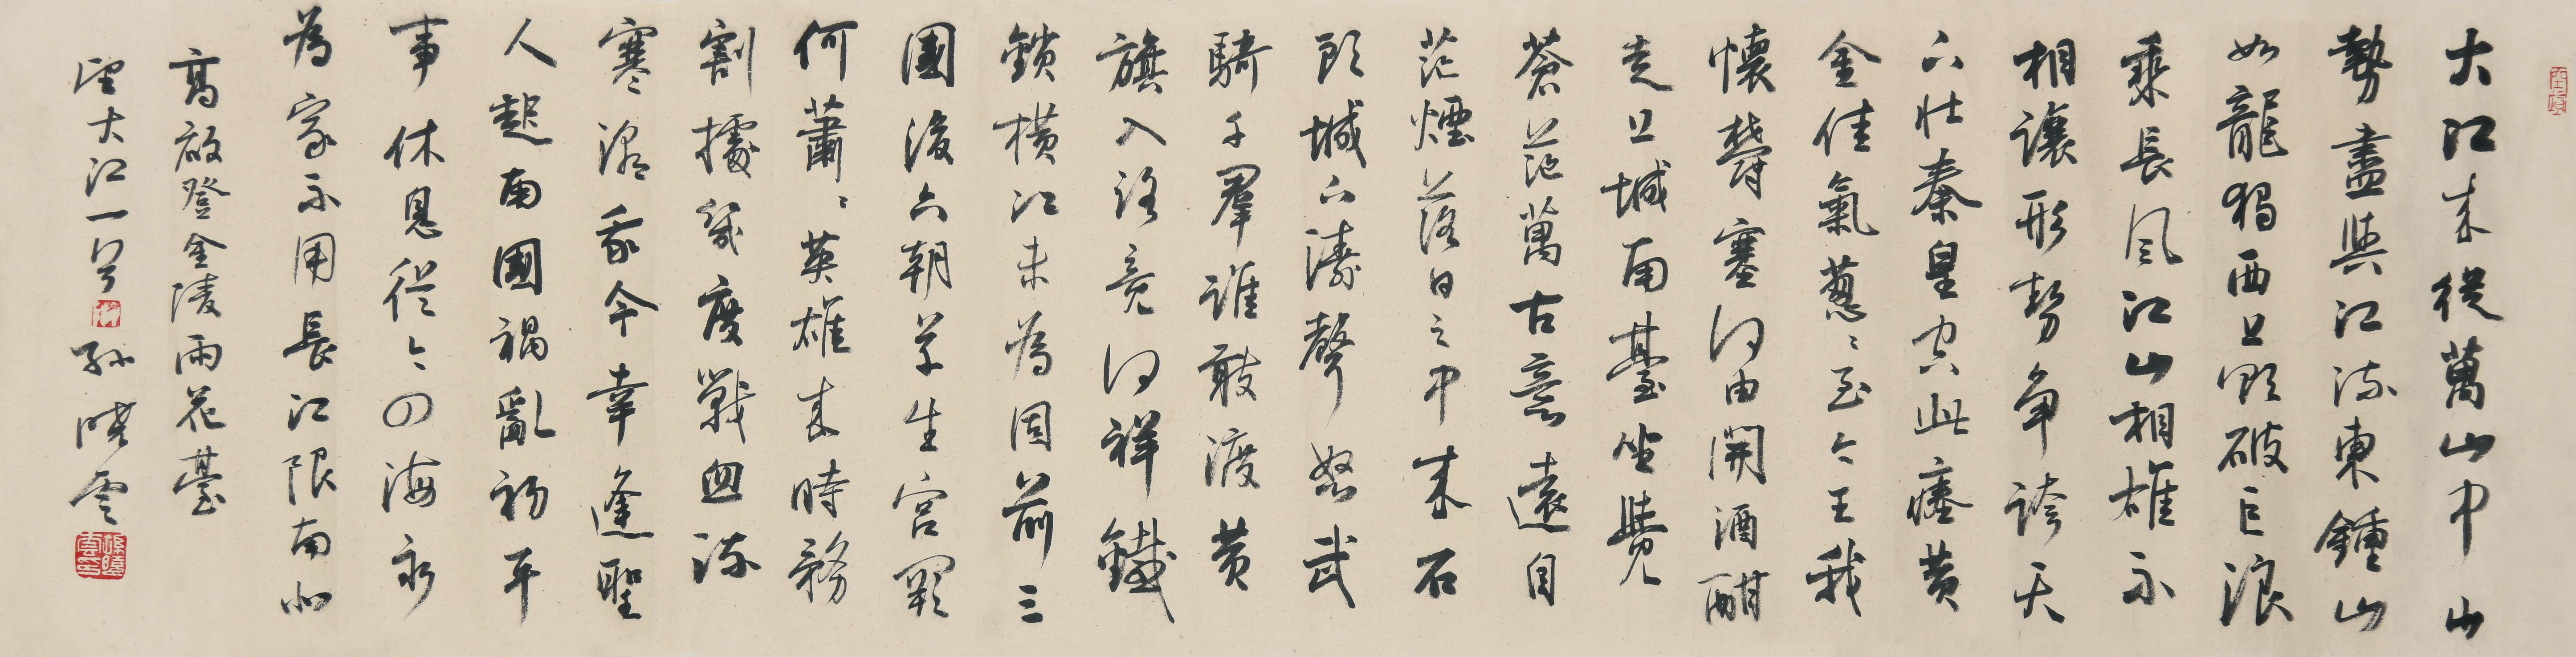 大江來從萬山中山
勢盡與江流東鍾山
如龍獨西上欲破巨浪
乘長風江山相雄不
相讓形勢爭誇天
下壯秦皇空此瘞黃
金佳氣蔥々至今王我
懷鬱塞何由開酒酣
走上城南臺坐覺
蒼茫萬古意遠自
茫煙落日之中來石
頭城下濤聲怒武
騎千羣誰敢渡黃
旗入洛竟何祥鐵
鎖橫江未為固前三
國後六朝草生宮闕
何蕭々英雄來時務
割據幾度戰血流
寒潮我今幸逢聖
人起南國禍亂初平
事休息從今四海永
為家不用長江限南北
高啟登金陵雨花臺
望大江一首 孫曉雲